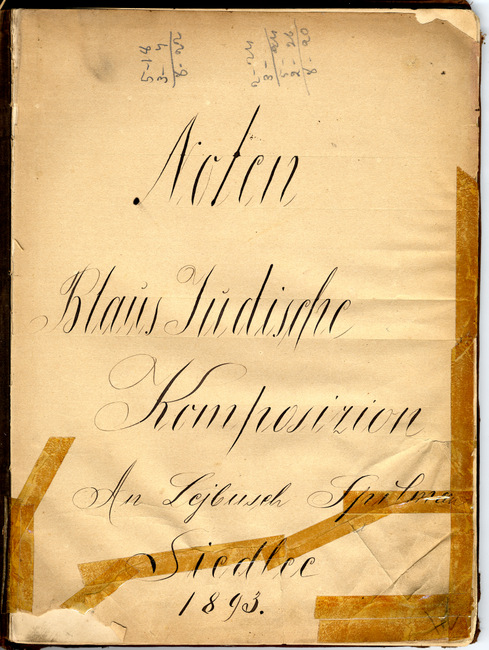 5-18
3-4
8-22
Noten
Blaus Judische
Komposizion
An Lejbusch
Siedlec
1893.